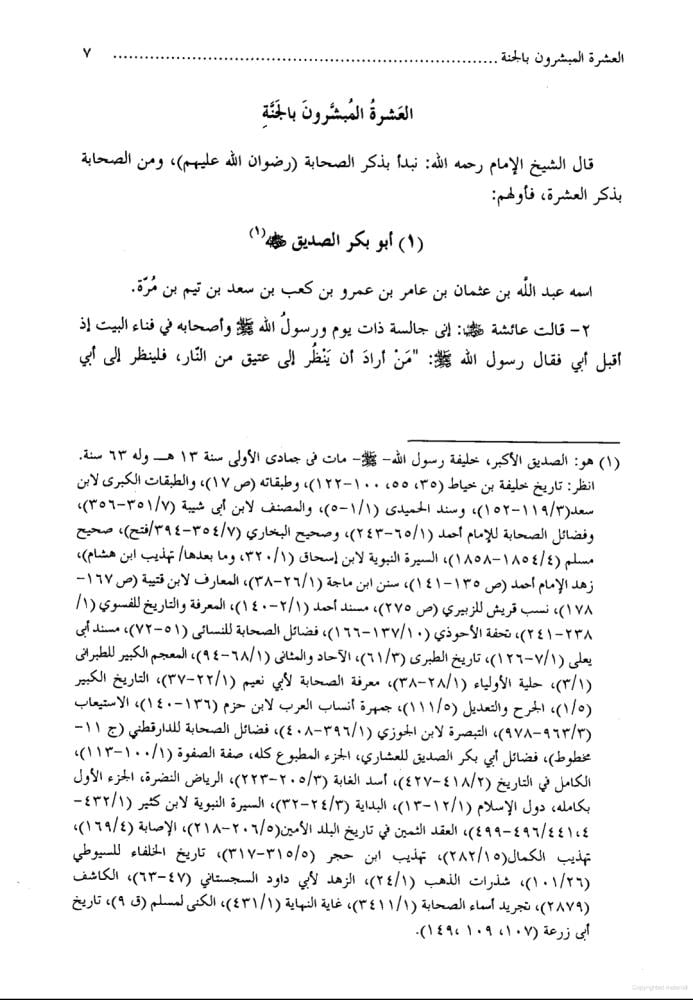 العشرة المبشرون بالجنة ........................................................................ ٧
العَشرةُ المُبشَّرونَ بالجَنَّةِ
قال الشيخ الإمام رحمه الله: نبدأ بذكر الصحابة (رضوان الله عليهم)، ومن الصحابة
بذكر العشرة، فأولهم:
(١) أبو بكر الصديق ﵁(١)
اسمه عبد اللَّه بن عثمان بن عامر بن عمرو بن كعب بن سعد بن تيم بن مُرّة.
٢- قالت عائشة ﵂: إنى جالسة ذات يوم ورسولُ الله ﷺ وأصحابه في فناء البيت إذ
أقبل أبي فقال رسول الله ﷺ: "مَنْ أرادَ أن يَنْظُر إلى عتيق من النّار، فلينظر إلى أبي
(١) هو: الصديق الأكبر، خليفة رسول الله- ﷺ- مات فى جمادى الأولى سنة ١٣ هـ وله ٦٣ سنة.
انظر: تاريخ خليفة بن خياط (٣٥، ٥٥، ١٠٠-١٢٢)، وطبقاته (ص ١٧)، والطبقات الكبرى لابن
سعد(١١٩/٣-١٥٢)، وسند الحميدى (١/١-٥)، والمصنف لابن أبى شيبة (٣٥١/٧-٣٥٦)،
وفضائل الصحابة للإمام أحمد (٦٥/١-٢٤٣)، وصحيح البخاري (٣٥٤/٧-٣٩٤/فتح)، صحيح
مسلم (١٨٥٤/٤-١٨٥٨)، السيرة النبوية لابن إسحاق (٣٢٠/١، وما بعدها/ تهذيب ابن هشام)،
زهد الإمام أحمد (ص ١٣٥-١٤١)، سنن ابن ماجة (٢٦/١-٣٨)، المعارف لابن قتيبة (ص ١٦٧-
١٧٨)، نسب قريش للزبيري (ص ٢٧٥)، مسند أحمد (٢/١-١٤٠)، المعرفة والتاريخ للفسوي (١/
٢٣٨-٢٤١)، تحفة الأحوذي (١٣٧/١٠-١٦٦)، فضائل الصحابة للنسائى (٥١-٧٢)، مسند أبى
يعلى (٧/١-١٢٦)، تاريخ الطبرى (٦١/٣)، الآحاد والمثانى (٦٨/١-٩٤)، المعجم الكبير للطبرانى
(٣/١)، حلية الأولياء (٢٨/١-٣٨)، معرفة الصحابة لأبي نعيم (٢٢/١-٣٧)، التاريخ الكبير
(١/٥)، الجرح والتعديل (١١١/٥)، جمهرة أنساب العرب لابن حزم (١٣٦-١٤٠)، الاستيعاب
(٩٦٣/٣-٩٧٨)، التبصرة لابن الجوزي (٣٩٦/١-٤٠٨)، فضائل الصحابة للدارقطني (ج ١١-
مخطوط)، فضائل أبي بكر الصديق للعشاري، الجزء المطبوع كله، صفة الصفوة (١٠٠/١-١١٣)،
الكامل في التاريخ (٤١٨/٢-٤٢٧)، أسد الغابة (٢٠٥/٣-٢٢٣)، الرياض النضرة، الجزء الأول
بكامله، دول الإسلام (١٢/١-١٣)، البداية (٢٤/٣-٣٢)، السيرة النبوية لابن كثير (٤٣٢/١-
٤٩٦/٤٤١،٤-٤٩٩)، العقد الثمين في تاريخ البلد الأمين(٢٠٦/٥-٢١٨)، الإصابة (١٦٩/٤)،
تهذيب الكمال(٢٨٢/١٥)، تهذيب ابن حجر (٣١٥/٥-٣١٧)، تاريخ الخلفاء للسيوطي
(١٠١/٢٦)، شذرات الذهب (٢٤/١)، الزهد لأبي داود السجستاني (٤٧-٦٣)، الكاشف
(٢٨٧٩)، تجريد أسماء الصحابة (٣٤١١/١)، غاية النهاية (٤٣١/١)، الكنى لمسلم (ق ٩)، تاريخ
أبى زرعة (١٠٧، ١٠٩ ،١٤٩).
Copyrighted material